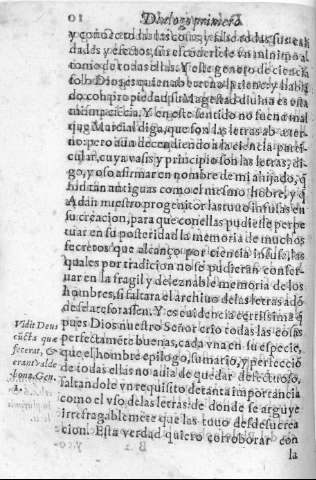 01 Dialogo primero
y como
dades y efectos, sin esconderse vn minimo al
tomo de todas ellas. Y este genero de ciencia
solo Dios es quien
do cõ propiedad su Magestad diuina es esta
misma ciencia. Y en este sentido no suena mal
que Marcial diga, que son las letras ab æter-
no: pero aun decendiendo a la ciencia parti-
cular, cuya vasis y principio son las letras, di-
go, y oso afirmar en nombre de mi ahijado, q̃
son tan antiguas como el mesmo hõbre, y q̃
Adan nuestro progenitor las tuuo infusas en
su creacion, para que con ellas pudiesse perpe
tuar en su posteridad la memoria de muchos
secretos que alcançò por ciencia infusa, las
quales por tradicion no se pudieran conser-
uar en la fragil y deleznable memoria de los
hombres, si faltara el archiuo de las letras adõ
de se atesorassen. Y es euidencia certissima q̃
pues Dios nuestro Señor crio todas las cosas
perfectamẽte buenas, cada vna en su especie,
que el hombre epilogo, sumario, y perfecciõ
de todas ellas no auia de quedar defectuoso,
faltandole vn requisito de tanta importancia
como el vso de las letras: de donde se arguye
irrefragablemẽte que las tuuo desde su crea
cion. Esta verdad quiero corroborar con
la
Vidit Deus
cũcta que
fecerat, &
erant valde
bona. Gen.
1.